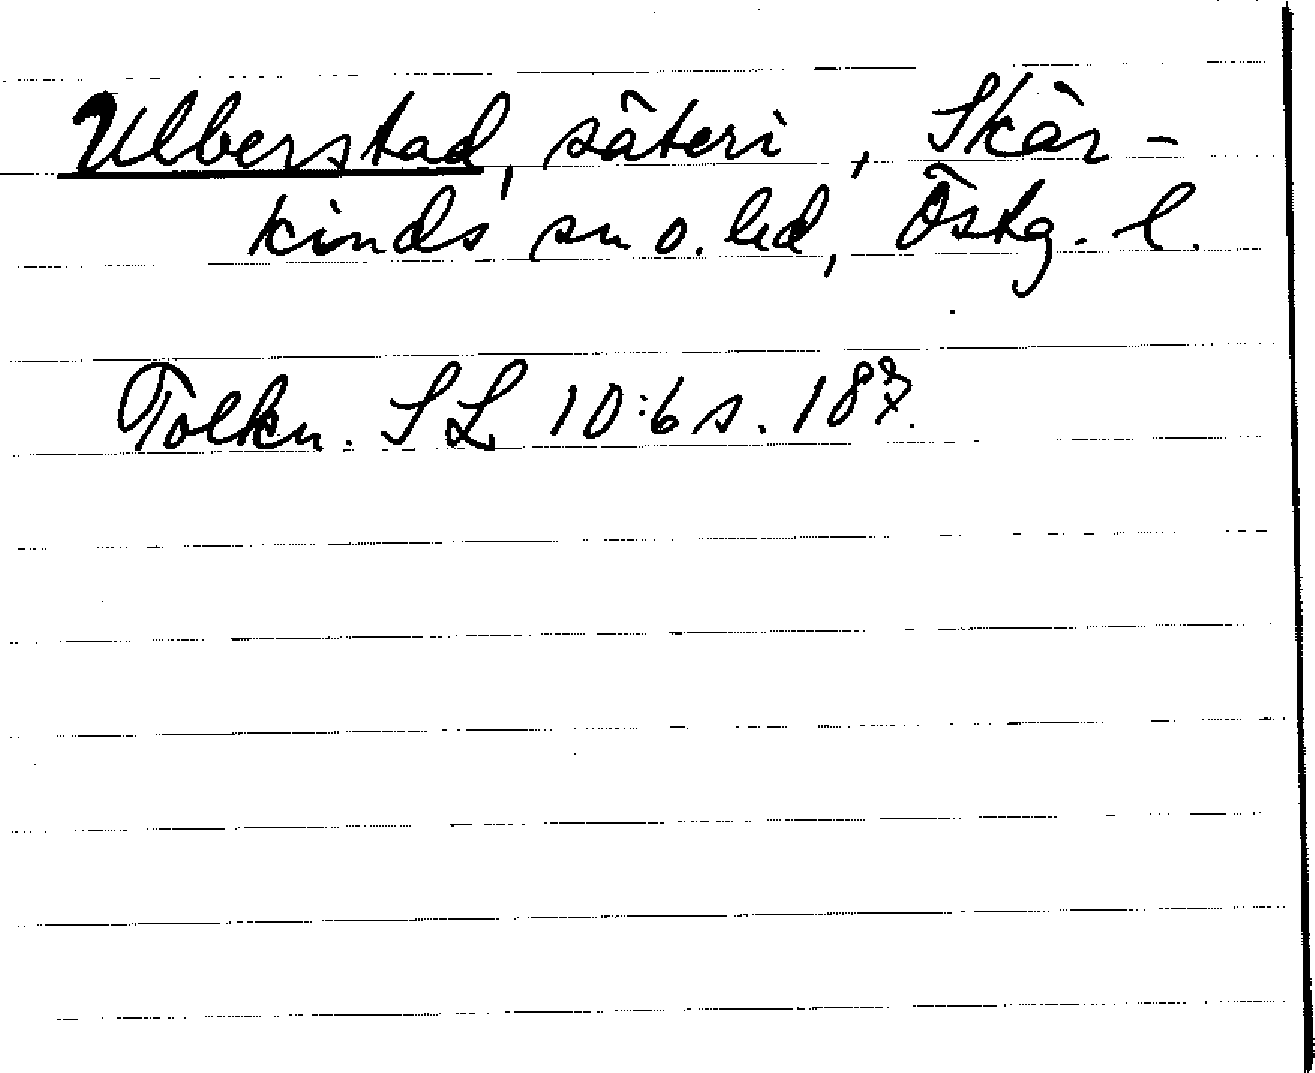 Ulberstad, säteri, Skär-
kinds sn o. hd, Östg. l.
Tolkn. SL 10:6 s. 187.